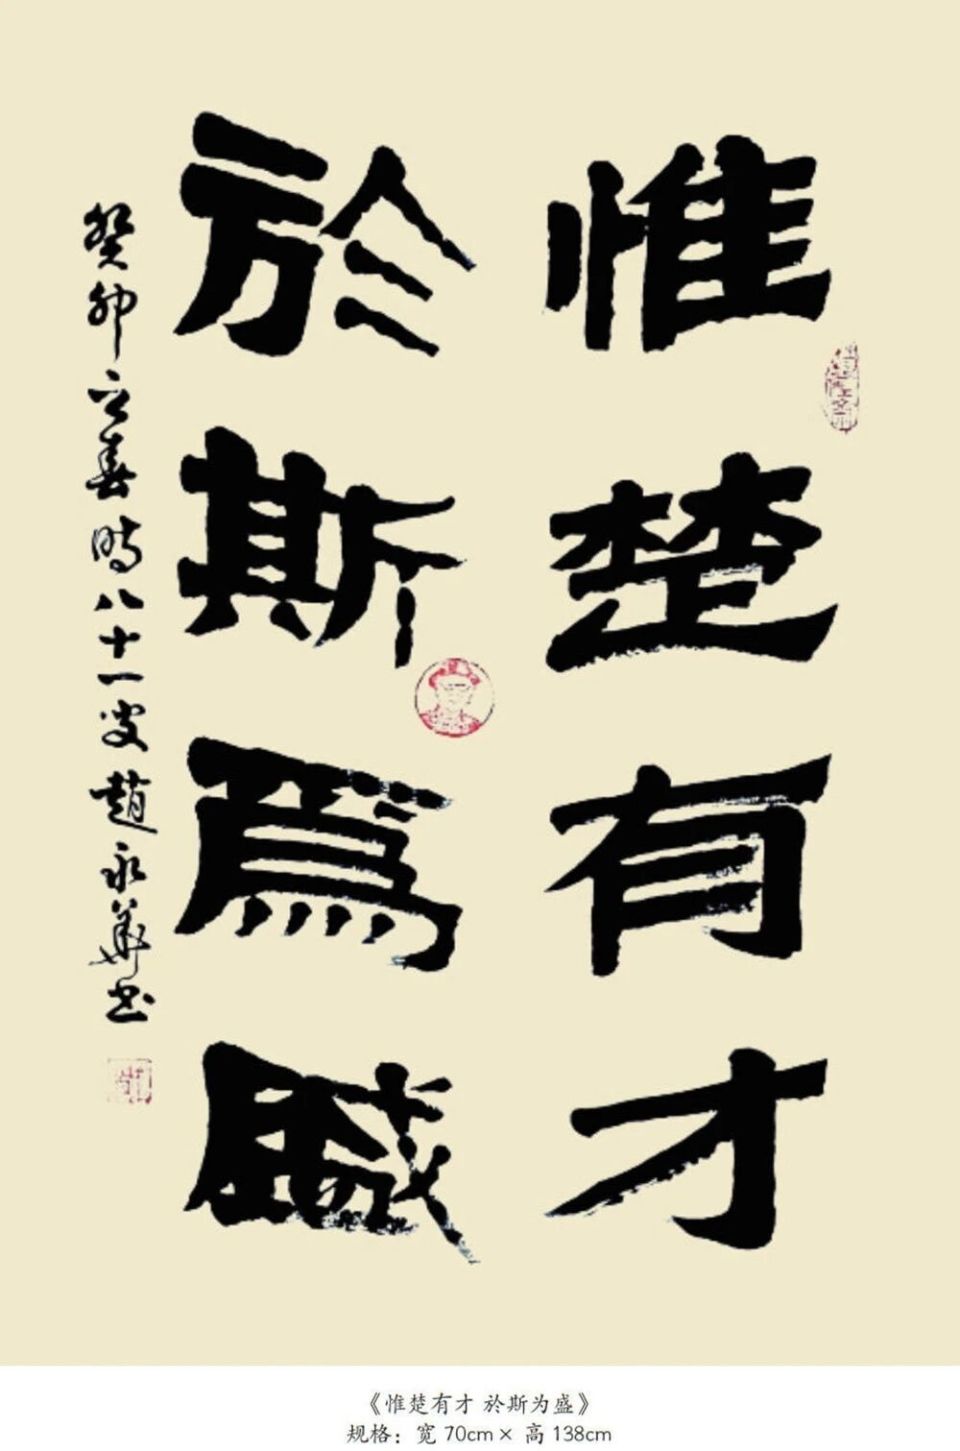 惟楚有才
於斯爲盛
癸卯立春時八十一叟趙永華书
《惟楚有才 於斯为盛》
规格：宽 70cm × 高 138cm